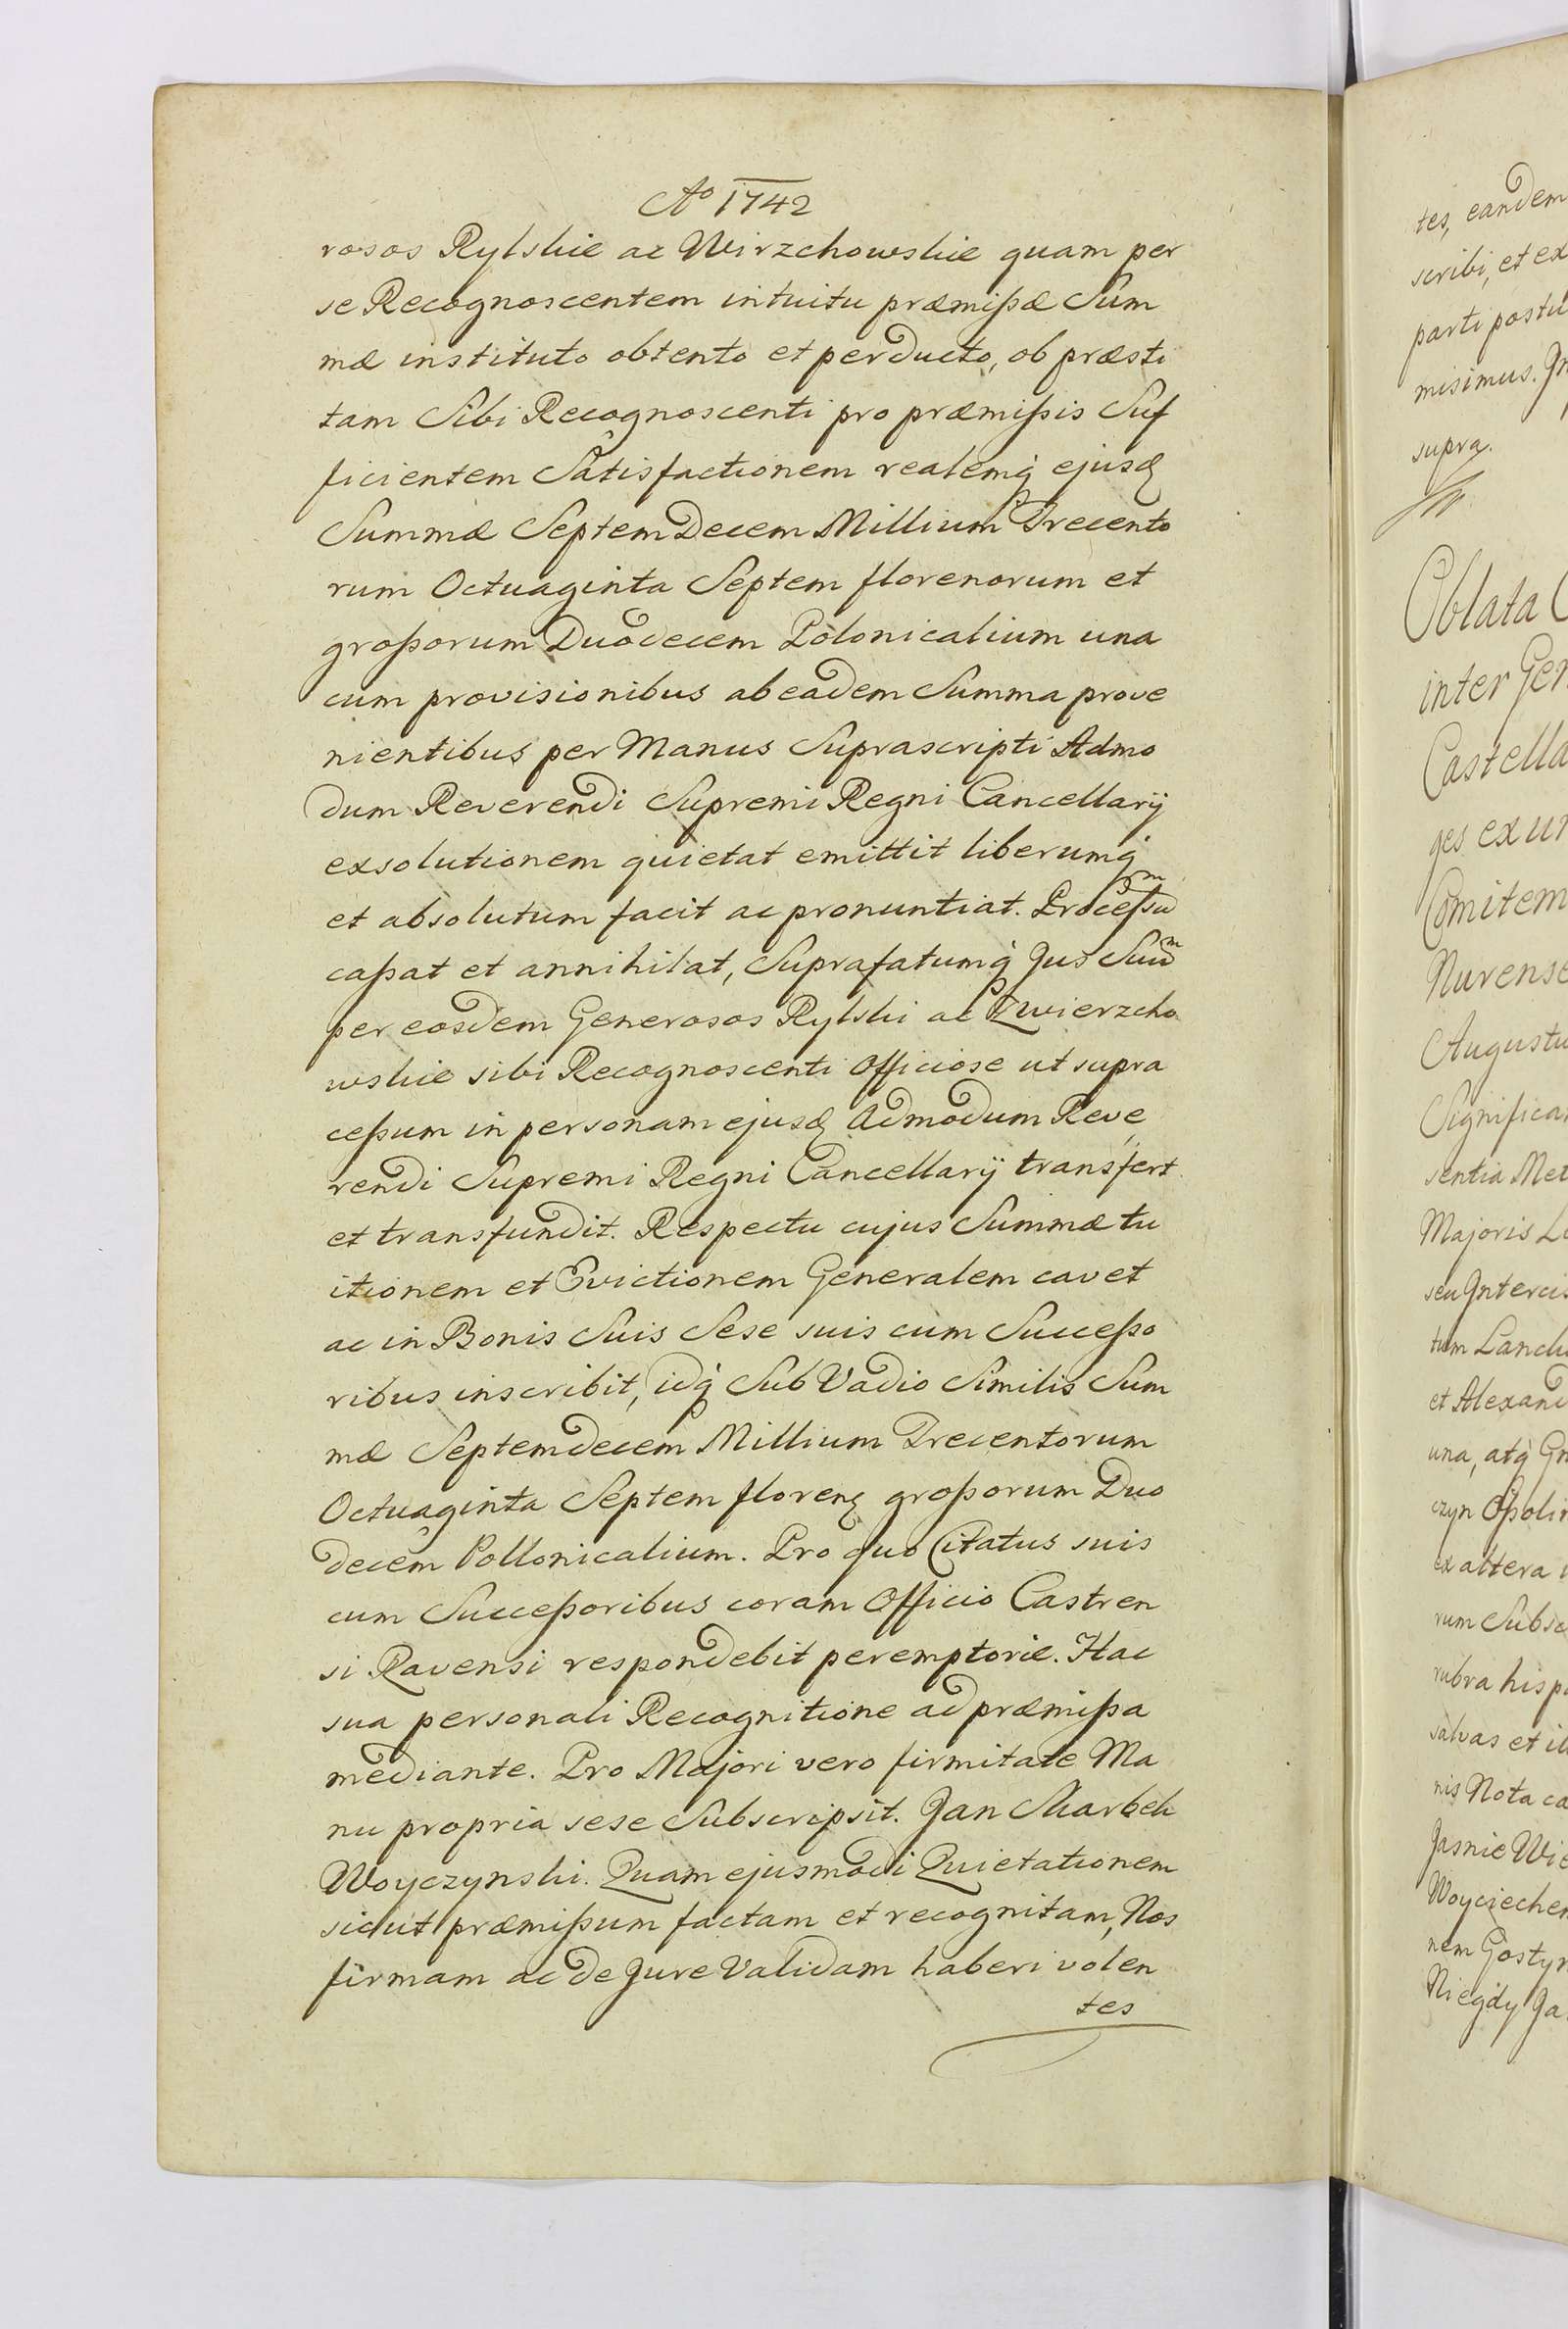 Aº 1742
rosos Rylskie ac Wirzchowskie quam per
se Recognoscentem intuitu præmißæ Sum
mæ instituto obtento et perducto, ob præsti
tam Sibi Recognoscenti pro præmißis Suf
ficientem Satisfactionem realemq ejusd
Summæ Septem Decem Millium Trecento
rum Octuaginta Septem florenorum et
großorum Duodecem Polonicalium una
cum provisionibus ab eadem Summa prove
nientibus per Manus Suprascripti Admo
dum Reverendi Supremi Regni Cancellarij
exsolutionem quietat emittit liberumq
et absolutum facit ac pronuntiat. Proceßum
caßat et annihilat, Suprafatumq Jus Suum
per eosdem Generosos Rylski ac Zwierzcho
wskie sibi Recognoscenti Officiose ut supra
ceßum in personam ejusd Admodum Reve
rendi Supremi Regni Cancellarij transfert
et transfundit. Respectu cujus Summæ tu
itionem et Evictionem Generalem cavet
ac in Bonis Suis Sese suis cum Succeßo
ribus inscribit, idq Sub Vadio Similis Sum
mæ Septemdecem Millium Trecentorum
Octuaginta Septem floren großorum Duo
decem Pollonicalium. Pro quo Citatus suis
cum Succeßoribus coram Officio Castren
si Ravensi respondebit peremptorie. Hac
sua personali Recognitione ad præmißa
mediante. Pro Majori vero firmitate Ma
nu propria sese Subscripsit. Jan Skarbek
Woyczynski. Quam ejusmodi Quietationem
sicut præmißum factam et recognitam, Nos
firmam ac de Jure Validam haberi volen
tes
tes, eandem
scribi, et ex
parti postu
misimus. In
supra.
Oblata C
inter Gen
Castella
ges ex un
Comitem
Nurense
Augustu
Significa
sentia Met
Majoris L
seu Intercis
tum Lancki
et Alexand
una, atq G
czyn Opolin
ex altera
rum Subsc
rubra hisp
salvas et il
nis Nota ca
Jasnie Wie
Woyciechem
nem Gostyn
Niegdy Ja